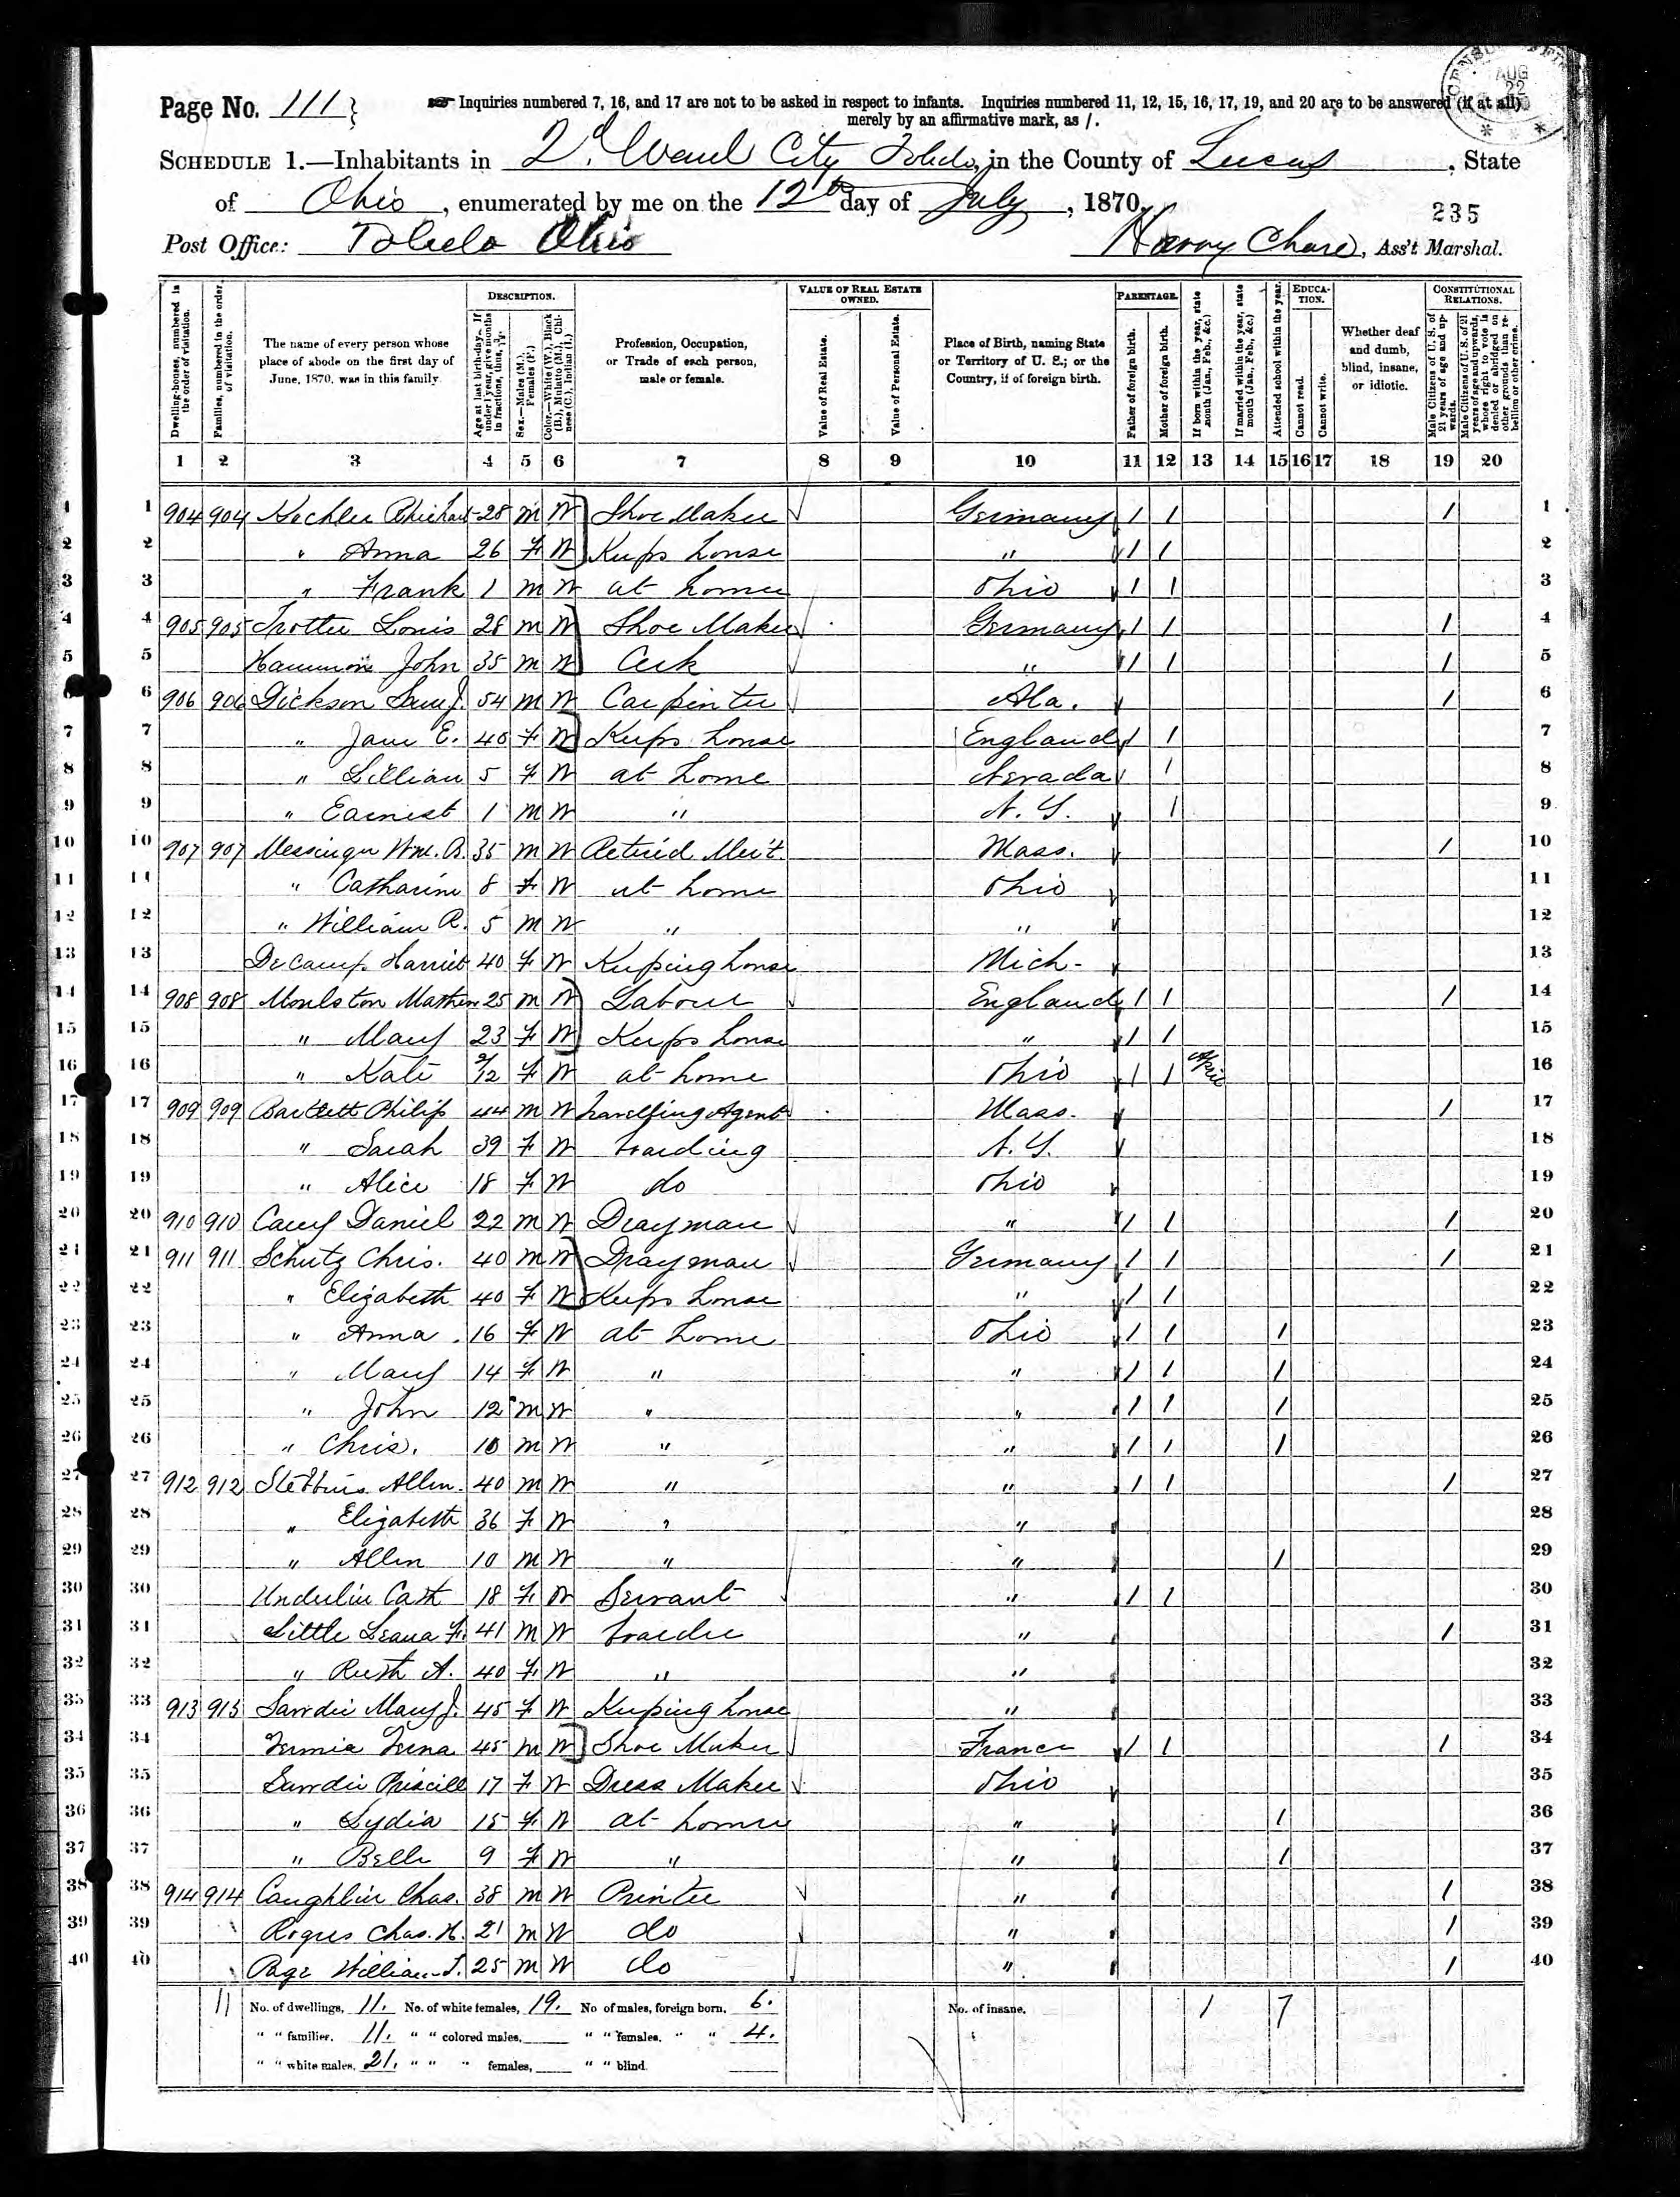 Page No. 111
Inquiries numbered 7, 16, and 17 are not to be asked in respect to infants. Inquiries numbered 11, 12, 15, 16, 17, 19, and 20 are to be answered (if at all)
merely by an affirmative mark, as /.
AUG 22
SCHEDULE 1.—Inhabitants in 2d Ward City Toledo, in the County of Lucas, State
of Ohio, enumerated by me on the 12th day of July, 1870.
235
Post Office: Toledo Ohio Harry Chase, Ass't Marshal.
Dwelling-houses, numbered in the order of visitation.
Families, numbered in the order of visitation.
The name of every person whose place of abode on the first day of June, 1870, was in this family.
DESCRIPTION.
Age at last birth-day. If under 1 year, give months in fractions, thus, 3/12
Sex.—Males (M.), Females (F.)
Color.—White (W.), Black (B.), Mulatto (M.), Chinese (C.), Indian (I.)
Profession, Occupation, or Trade of each person, male or female.
VALUE OF REAL ESTATE OWNED.
Value of Real Estate.
Value of Personal Estate.
Place of Birth, naming State or Territory of U. S.; or the Country, if of foreign birth.
PARENTAGE.
Father of foreign birth.
Mother of foreign birth.
If born within the year, state month (Jan., Feb., &c.)
If married within the year, state month (Jan., Feb., &c.)
Attended school within the year.
EDUCATION.
Cannot read.
Cannot write.
Whether deaf and dumb, blind, insane, or idiotic.
CONSTITUTIONAL RELATIONS.
Male Citizens of U. S. of 21 years of age and upwards.
Male Citizens of U. S. of 21 years of age and upwards, whose right to vote is denied or abridged on other grounds than rebellion or other crime.
1 2 3 4 5 6 7 8 9 10 11 12 13 14 15 16 17 18 19 20
1 904 904 28 M W Shoe Maker Germany / / / 1
2 " Anna 26 F W Keeps house " / / 2
3 " Frank 1 M W at home Ohio / / 3
4 905 905 Trotter Louis 28 M W Shoe Maker Germany / / / 4
5 John 35 M W " / / / 5
6 906 906 Dickson Saml J. 54 M W Carpenter Ala. / 6
7 " Jane E. 40 F W Keeps house England / / 7
8 " Lillian 5 F W at home Nevada / 8
9 " Earnest 1 M W " N. Y. / 9
10 907 907 Messinger Wm. R. 35 M W Retired Mer't. Mass. / 10
11 " Catharine 8 F W at home Ohio 11
12 " William R. 5 M W " " 12
13 DeCamp Harriet 40 F W Keeping house Mich. 13
14 908 908 Moulston Mathew 25 M W Labourer England / / / 14
15 " Mary 23 F W Keeps house " / / 15
16 " Kate 2/12 F W at home Ohio / / April 16
17 909 909 Bartlett Philip 44 M W travelling Agent Mass. / 17
18 " Sarah 39 F W boarding N. Y. 18
19 " Alice 18 F W do Ohio 19
20 910 910 Carey Daniel 22 M W Drayman " / / / 20
21 911 911 Schutz Chris. 40 M W Drayman Germany / / / 21
22 " Elizabeth 40 F W Keeps house " / / 22
23 " Anna 16 F W at home Ohio / / / 23
24 " Mary 14 F W " " / / / 24
25 " John 12 M W " " / / / 25
26 " Chris. 10 M W " " / / / 26
27 912 912 Stebbins Allen 40 M W " " / / / 27
28 " Elizabeth 36 F W " " 28
29 " Allen 10 M W " " / 29
30 Cath 18 F W Servant " / / 30
31 Little F. 41 M W boarder " / 31
32 " Ruth A. 40 F W " " 32
33 913 913 Mary J. 45 F W Keeping house " 33
34 45 M W Shoe Maker France / / / 34
35 17 F W Dress Maker Ohio 35
36 " Lydia 15 F W at home " / 36
37 " Belle 9 F W " " / 37
38 914 914 Caughlin Chas. 38 M W Printer " / 38
39 Rogers Chas. H. 21 M W do " / 39
40 Page William T. 25 M W do " / 40
11 No. of dwellings, 11. No. of white females, 19. No of males, foreign born, 6. No. of insane, 1 7
" " families, 11. " " colored males, " " females, " " 4.
" " white males, 21. " " " females, " " blind.